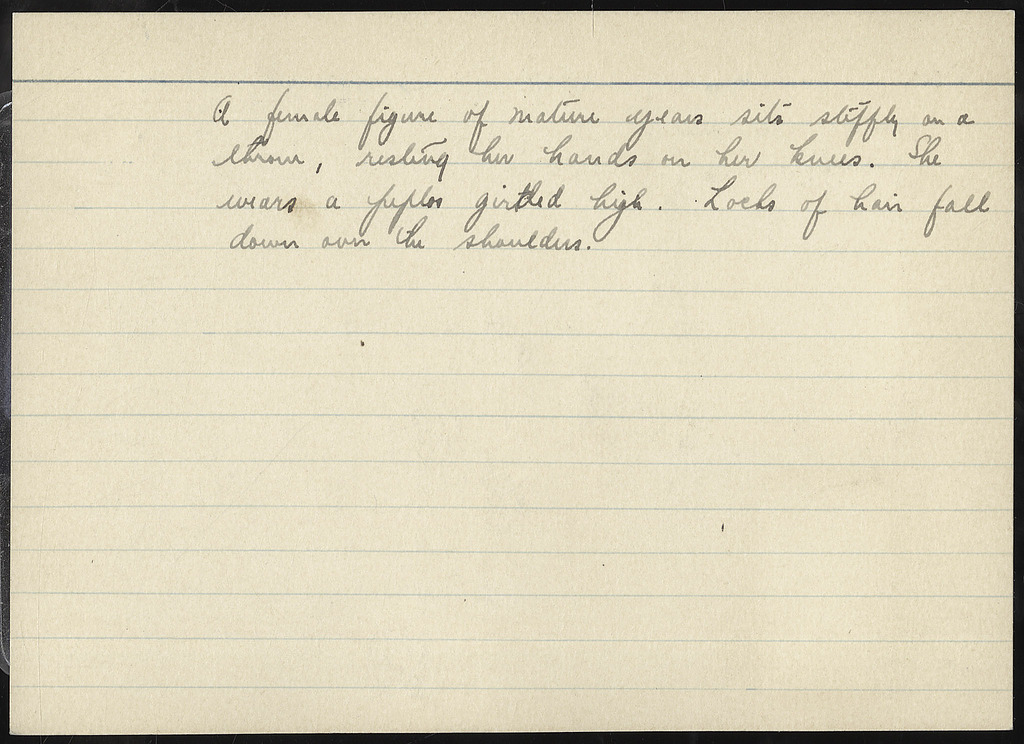 A female figure of mature years sits stiffly on a
throne, resting her hands on her knees. She
wears a peplos girtled high. Locks of hair fall
down over the shoulders.